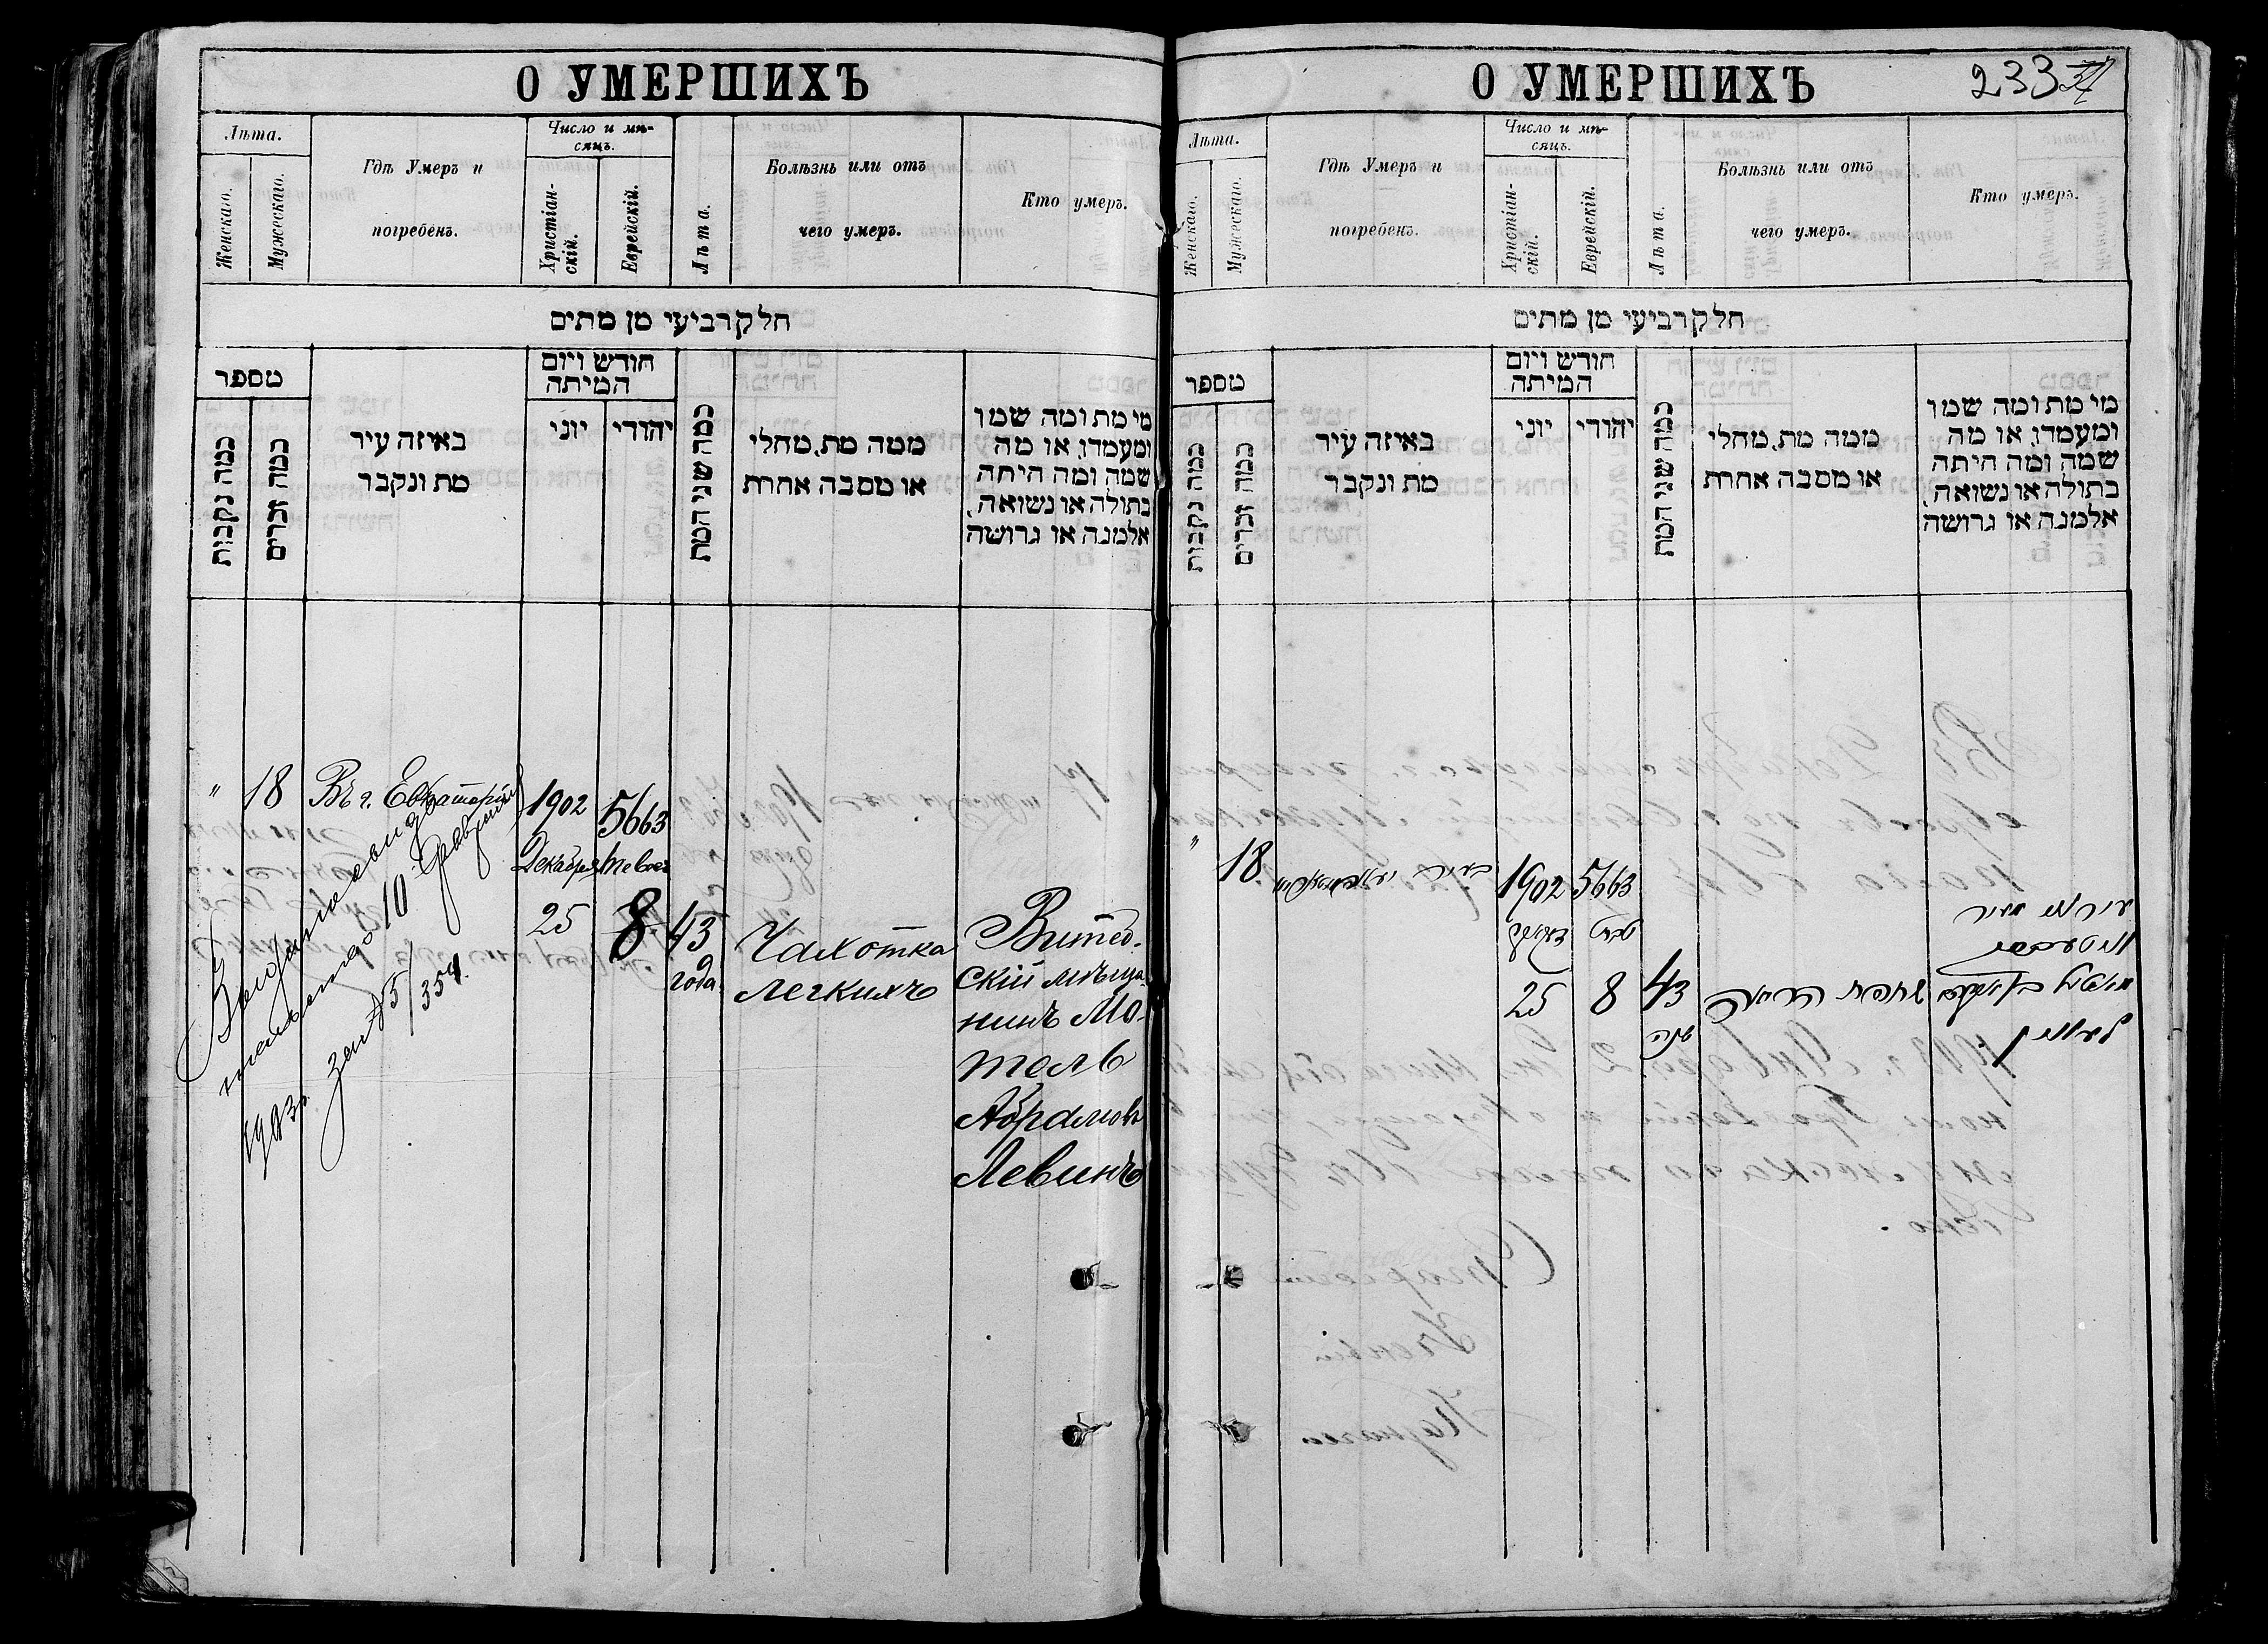 О УМЕРШИХЪ
Лѣта.
Женскаго.
Мужескаго.
Гдѣ Умеръ и
погребенъ.
Число и мѣ-
сяцъ.
Христіан-
скій.
Еврейскій.
Лѣта.
Болѣзнь или отъ
чего умеръ.
Кто умеръ.
חלק רביעי מן מתים
מספר
כמה נקבות
כמה זכרים
באיזה עיר
מת ונקבר
חודש ויום
המיתה
יוני
יהודי
כמה שני המת
ממה מת, מחלי
או מסבה אחרת
מי מת ומה שמו
ומעמדו, או מה
שמה ומה היתה
בתולה או נשואה,
אלמנה או גרושה
" 18
Въ г. Евпаторіи
1902
Декабря
25
5663
Тевесъ
8
43
года
Чахотка
легкихъ
Витеб-
скій мѣща-
нинъ Мо-
тель
Абрамовъ
Левинъ
10 Февраля
1903 г. за № 5/354.
О УМЕРШИХЪ
233
Лѣта.
Женскаго.
Мужескаго.
Гдѣ Умеръ и
погребенъ.
Число и мѣ-
сяцъ.
Христіан-
скій.
Еврейскій.
Лѣта.
Болѣзнь или отъ
чего умеръ.
Кто умеръ.
חלק רביעי מן מתים
מספר
כמה נקבות
כמה זכרים
באיזה עיר
מת ונקבר
חודש ויום
המיתה
יוני
יהודי
כמה שני המת
ממה מת, מחלי
או מסבה אחרת
מי מת ומה שמו
ומעמדו, או מה
שמה ומה היתה
בתולה או נשואה,
אלמנה או גרושה
" 18
1902
25
5663
8
43
שנה